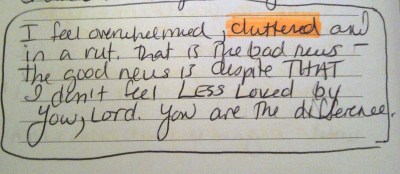 I feel overwhelmed, cluttered and
in a rut. That is the bad news –
the good news is despite THAT
I don't feel LESS Loved by
you, Lord. You are the difference.